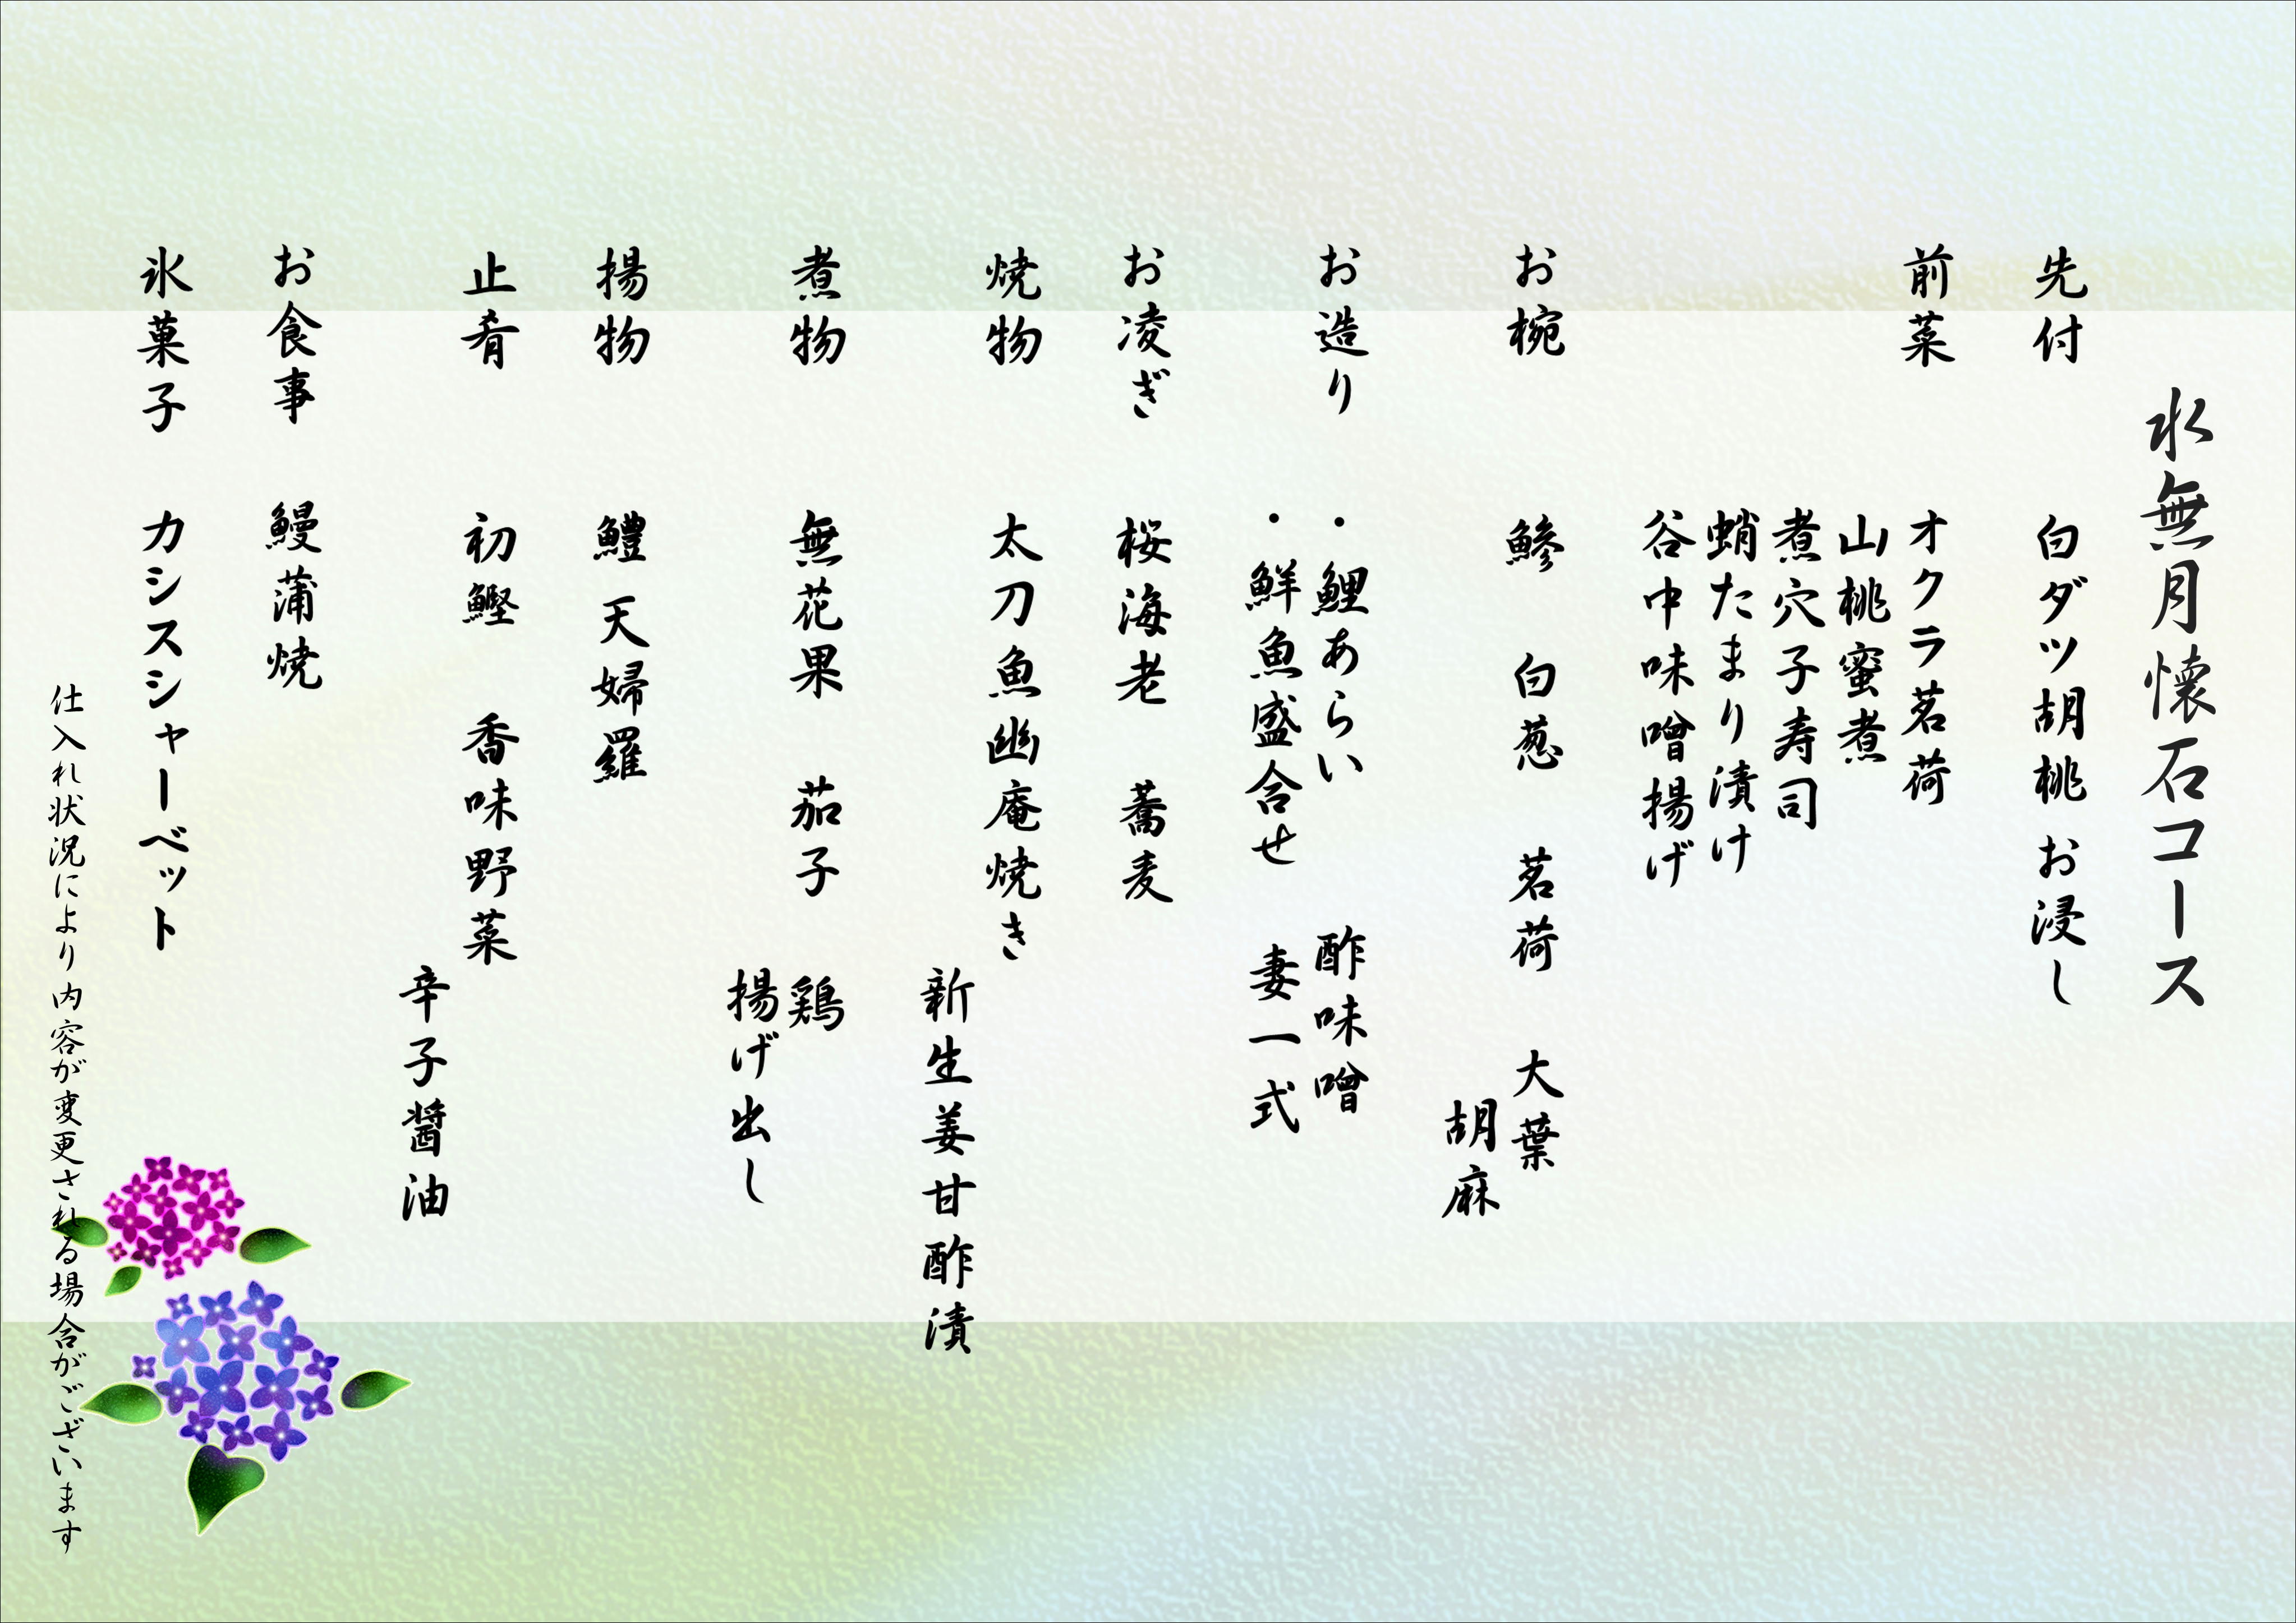 水無月懐石コース
先付　白ダツ胡桃 お浸し
前菜　オクラ茗荷
山桃蜜煮
煮穴子寿司
蛸たまり漬け
谷中味噌揚げ
お椀　鯵　白葱　茗荷　大葉
胡麻
お造り　・鯉あらい　酢味噌
・鮮魚盛合せ　妻一式
お凌ぎ　桜海老　蕎麦
焼物　太刀魚幽庵焼き
新生姜甘酢漬
煮物　無花果　茄子　鶏
揚げ出し
揚物　鱧 天婦羅
止肴　初鰹　香味野菜
辛子醤油
お食事　鰻蒲焼
氷菓子　カシスシャーベット
仕入れ状況により内容が変更される場合がございます